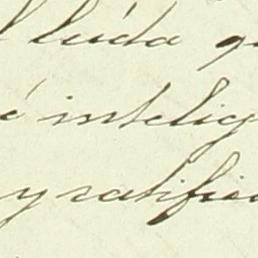 leida
é intelig
y ratific